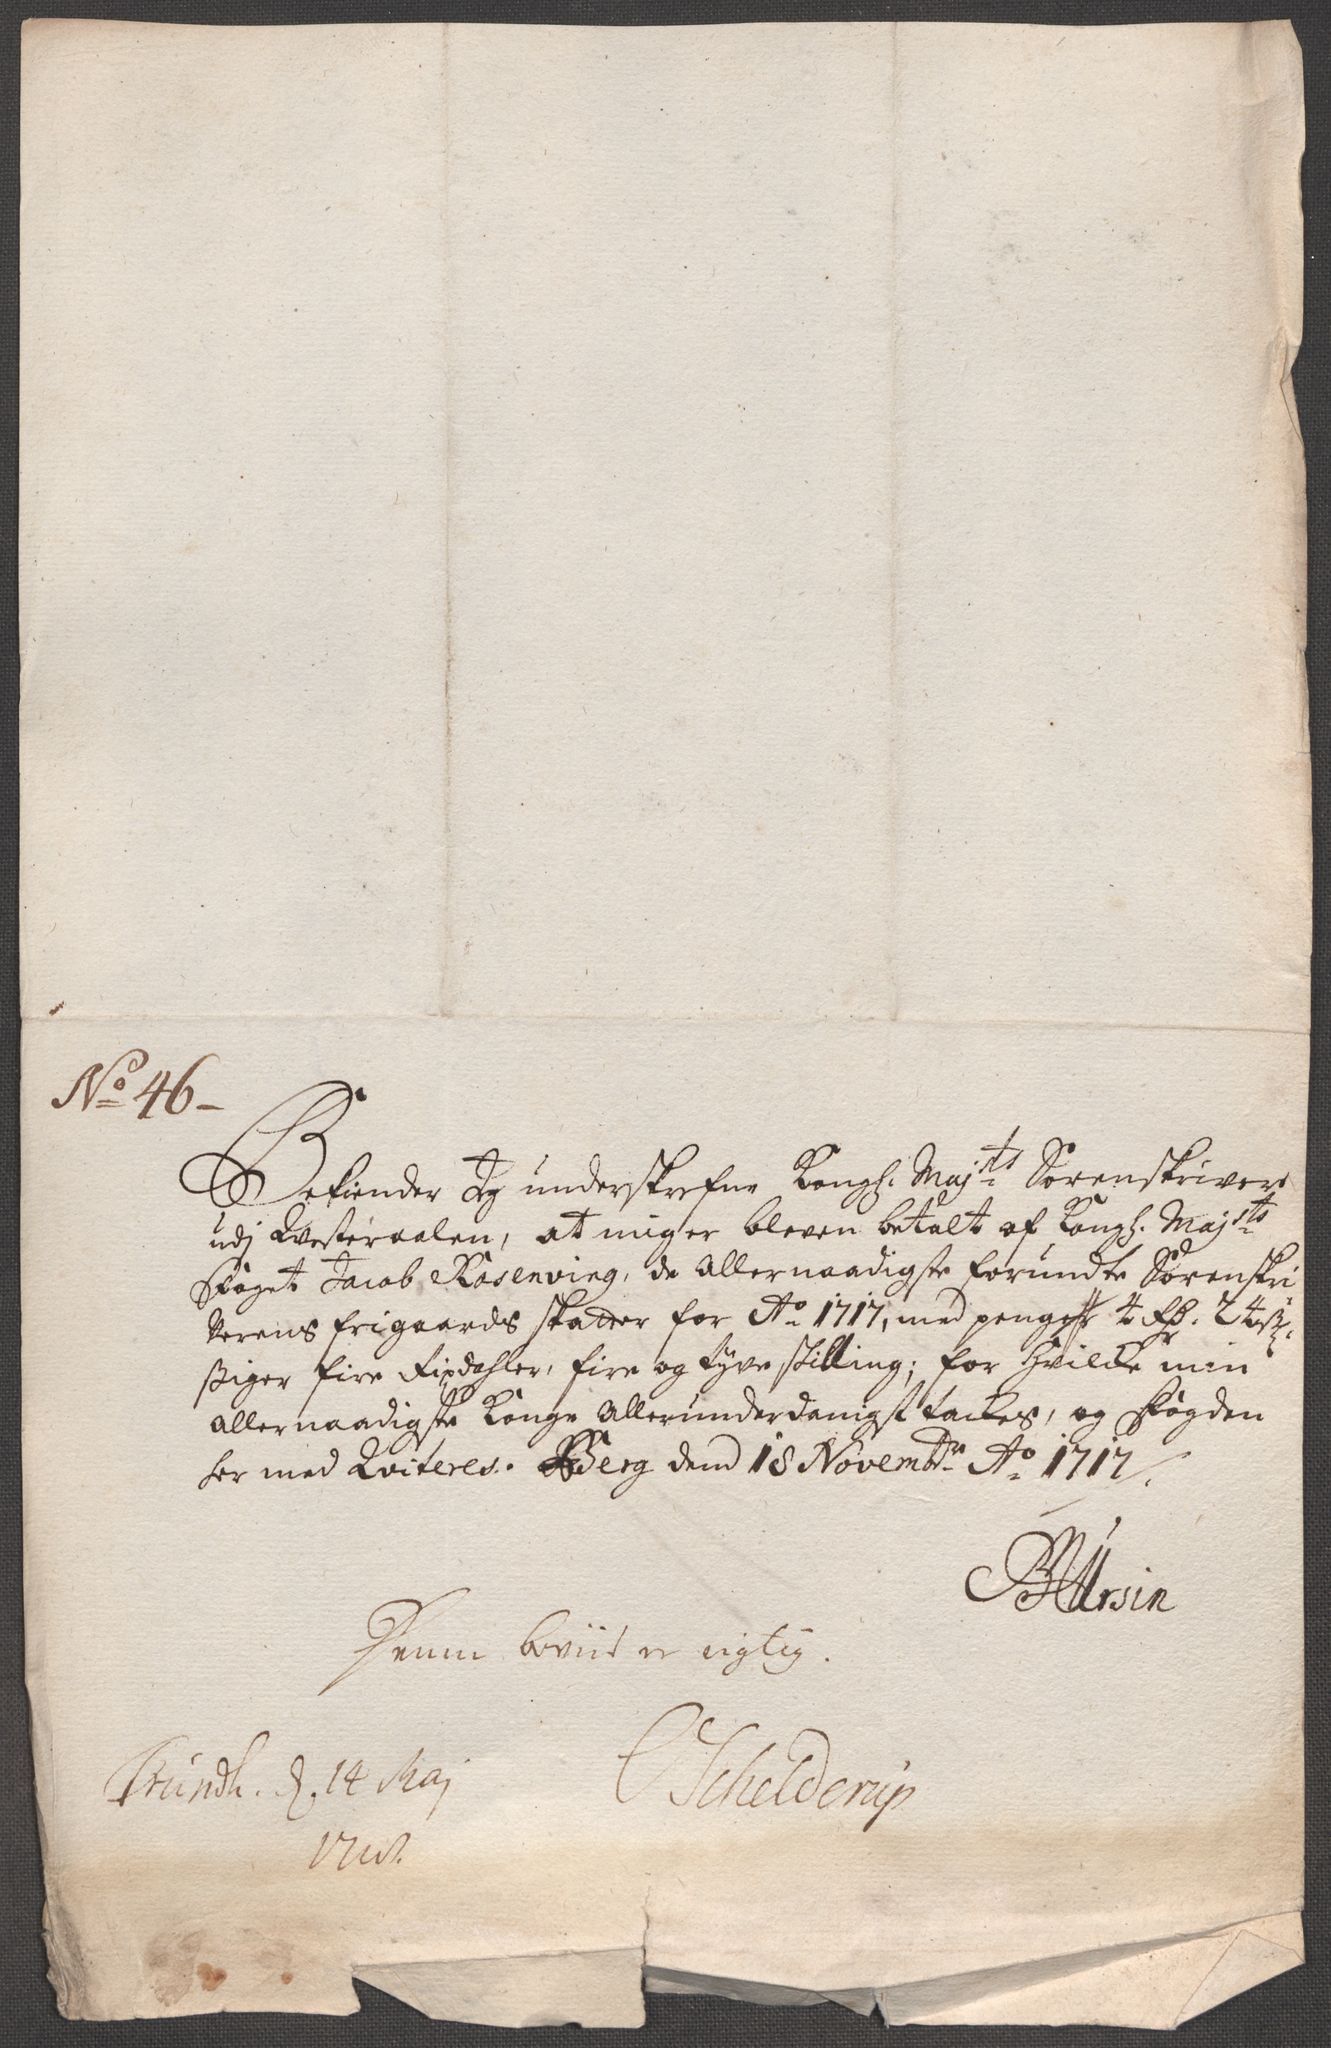 No 46 -
Bekiender Jeg underskrefne Kongl. Majts Sorenskriver
udj Westeraalen, at mig er bleven betalt af Kongl. Majsts
Foget Jacob Rosenving, de Allernaadigste forundte Sorenskri-
verens frigaards skatter for Ao 1717, med penge 4 Rd. 24 ß,
siger fire Rixdahler, fire og tyve skilling; for hvilcke min
allernaadigste Konge Allerunderdanigst tackes, og Fogden
her med Qviteres. Berg dend 18 Novembr Ao 1717
Ursin
Denne beviis er rigtig.
Trundh. d. 14 Maj
Schelderup